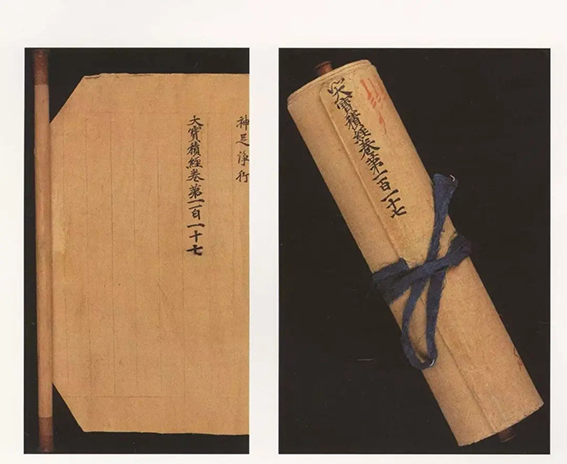 神足净行
大寶積經卷第一百一十七
大寶積經卷第一百一十七